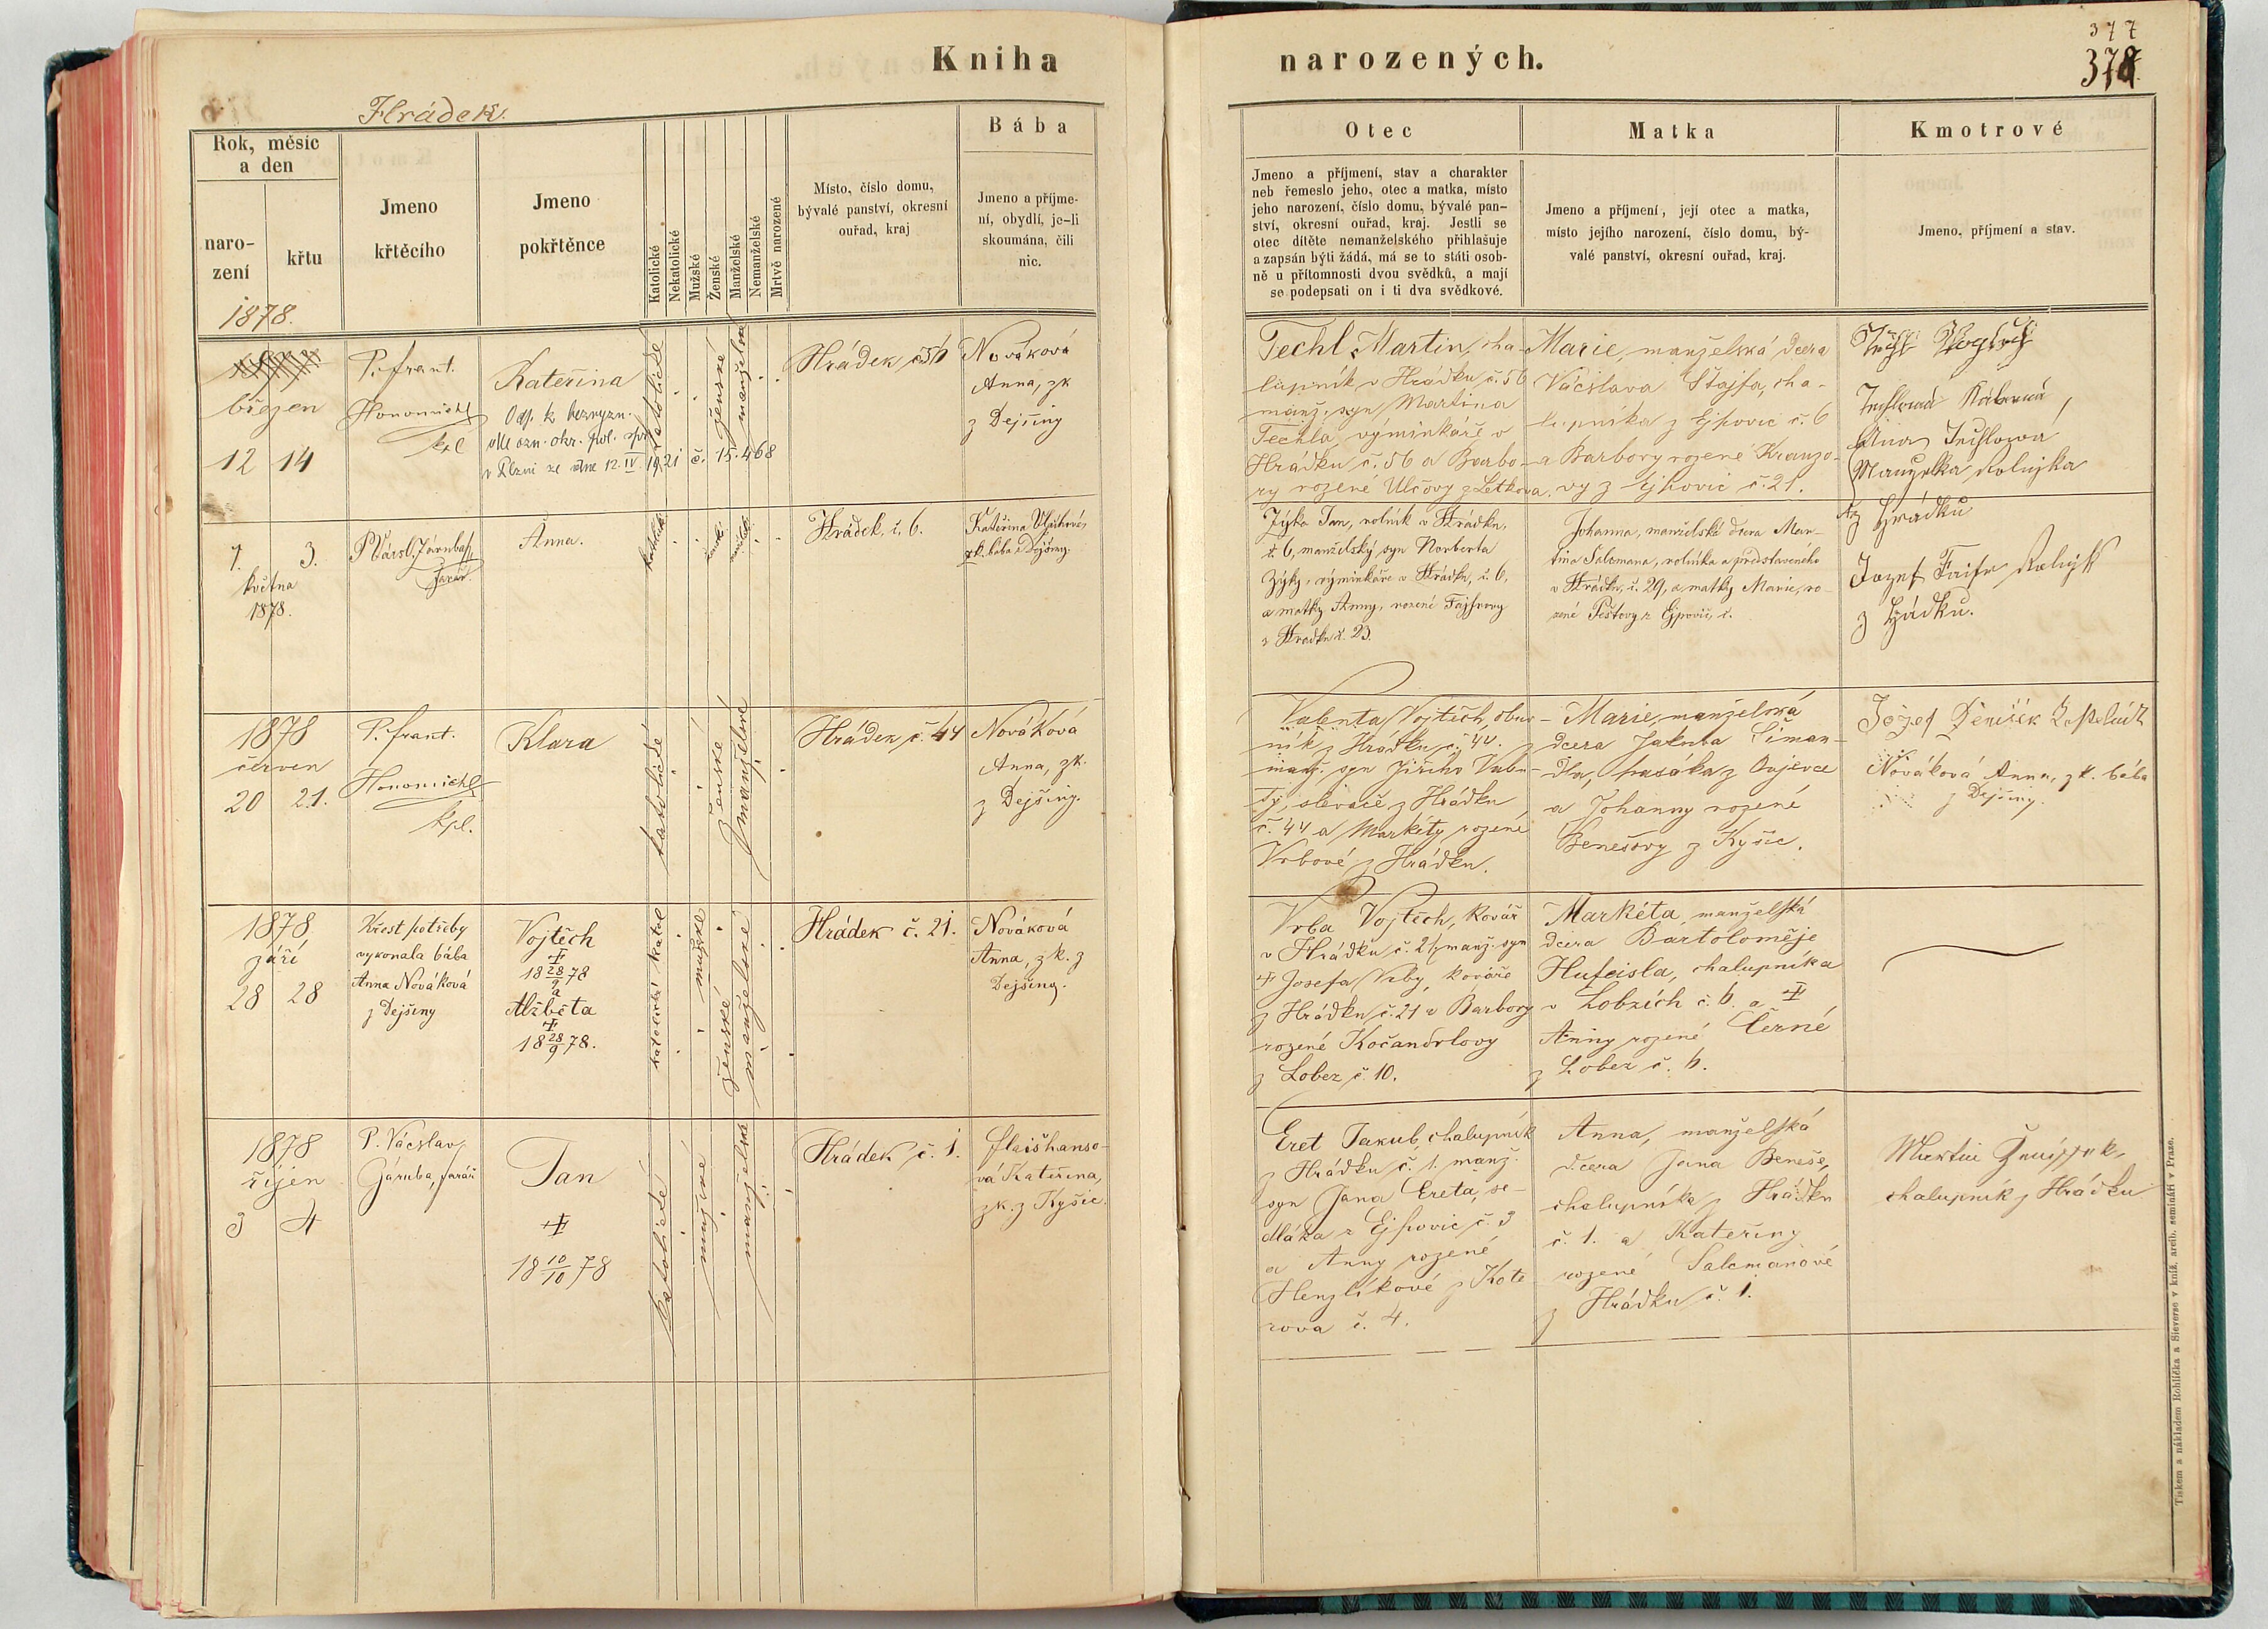 Kniha
narozených.
377
378
Hrádek.
Rok, měsíc
a den
naro-
zení
křtu
Jmeno
křtěcího
Jmeno
pokřtěnce
Katolické
Nekatolické
Mužské
Ženské
Manželské
Nemanželské
Mrtvě narozené
Místo, číslo domu,
bývalé panství, okresní
ouřad, kraj
Bába
Jmeno a příjme-
ní, obydlí, je-li
skoumána, čili
nic.
Otec
Jmeno a příjmení, stav a charakter
neb řemeslo jeho, otec a matka, místo
jeho narození, číslo domu, bývalé pan-
ství, okresní ouřad, kraj. Jestli se
otec dítěte nemanželského přihlašuje
a zapsán býti žádá, má se to státi osob-
ně u přítomnosti dvou svědků, a mají
se podepsati on i ti dva svědkové.
Matka
Jmeno a příjmení, její otec a matka,
místo jejího narození, číslo domu, bý-
valé panství, okresní ouřad, kraj.
Kmotrové
Jmeno, příjmení a stav.
1878.
březen
12 14
P. Frant.
Honomichl
kpl
Kateřina
Odp. k bezvyzn.
dle ozn. okr. pol. spr.
v Plzni ze dne 12. IV. 1921 č. 15.468
katolické
ženské
manželské
Hrádek č 56
Nováková
Anna, zk
z Dejšiny
Techl Martin, cha-
lupník v Hrádku č. 56
manž. syn Martina
Techla, výminkáře v
Hrádku č. 56 a Barbo-
ry rozené Ulčovy z Letkova.
Marie, manželská dcera
Václava Štajfa, cha-
lupníka z Ejpovic č. 6
a Barbory rozené
vy z Ejpovic č. 21.
Anna Techlowá
Manželka Rolnjka
z Hrádku
1. 3.
května
1878.
P. Václ. Járuba,
farář.
Anna.
katolické
ženské
manželské
Hrádek, č. 6.
Kateřina
zk. bába z Dejšiny.
Zýka Jan, rolník v Hrádku,
č. 6, manželský syn Norberta
Zýky, výminkáře v Hrádku, č. 6,
a matky Anny, rozené Fajfrovy
z Hrádku č. 23.
Johanna, manželská dcera Mar-
tina Salcmana, rolníka a představeného
v Hrádku, č. 29, a matky Marie, ro-
zené Peštovy z Ejpovic, č.
Jozef Faifr Rolnjk
z Hrádku.
1878
červen
20 21.
P. Frant.
Honomichl
kpl.
Klara
katolické
ženské
manželské
Hrádek č. 44
Nováková
Anna, zk.
z Dejšiny.
Valenta Vojtěch, obuv-
ník z Hrádku č. 44.
manž. syn Jiřího Valen-
ty, slévače z Hrádku
č. 44 a Markéty rozené
Vrbové z Hrádku.
Marie, manželská
dcera Jakuba Šiman-
dla, pasáka z Osjevce
a Johanny rozené
Benešovy z Kyšic.
Jozef
Nováková Anna, zk. bába
z Dejšiny.
1878
září
28 28
Křest potřeby
vykonala bába
Anna Nováková
z Dejšiny
Vojtěch
†
18 28/9 78
a
Alžběta
†
18 28/9 78.
katolické katol
mužské
ženské
manželské
Hrádek č. 21.
Nováková
Anna, zk. z
Dejšiny.
Vrba Vojtěch, kovář
v Hrádku č. 21, manž. syn
† Josefa Vrby, kováře
z Hrádku č. 21 a Barbory
rozené Kočandrlovy
z Lobez č. 10.
Markéta, manželská
dcera Bartoloměje
Hufeisla, chalupníka
v Lobzích č. 6. a †
Anny rozené Černé
z Lobez č. 6.
1878
říjen
3 4
P. Václav
Járuba, farář
Jan
†
18 10/10 78
katolické
mužské
manželské
Hrádek č. 1.
Flaišhanso-
vá Kateřina,
zk. z Kyšic.
Eret Jakub, chalupník
z Hrádku č. 1. manž.
syn Jana Ereta, se-
dláka z Ejpovic č. 3
a Anny rozené
Henzlíkové z Kote
rova č. 4.
Anna, manželská
dcera Jana Beneše,
chalupníka z Hrádku
č. 1. a Kateřiny
rozené Salcmanové
z Hrádku č. 1.
Martin
chalupník z Hrádku
Tiskem a nákladem Rohlíčka a Sieverse v kníž. arcib. semináři v Praze.